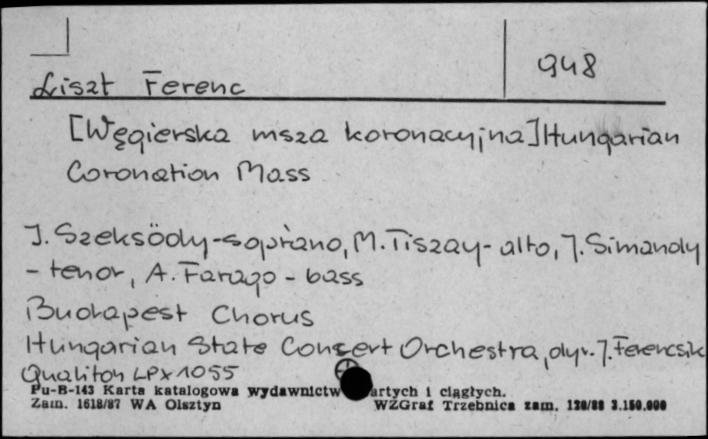 948
Liszt Ferenc
[Węgierska msza koronacyjna] Hungarian
Coronation Mass
J. Szeksödy-soprano, M. Tiszay-alto, J. Simandy
-tenor, A. Farago-bass
Budapest Chorus
Hungarian State Concert Orchestra, dyr. J. Ferencsik
Qualiton LPX 1055
Pu-B-143 Karta katalogowa wydawnictw artych i ciągłych.
Zam. 1618/87 WA Olsztyn WZGraf Trzebnica zam. 120/88 3.150.000